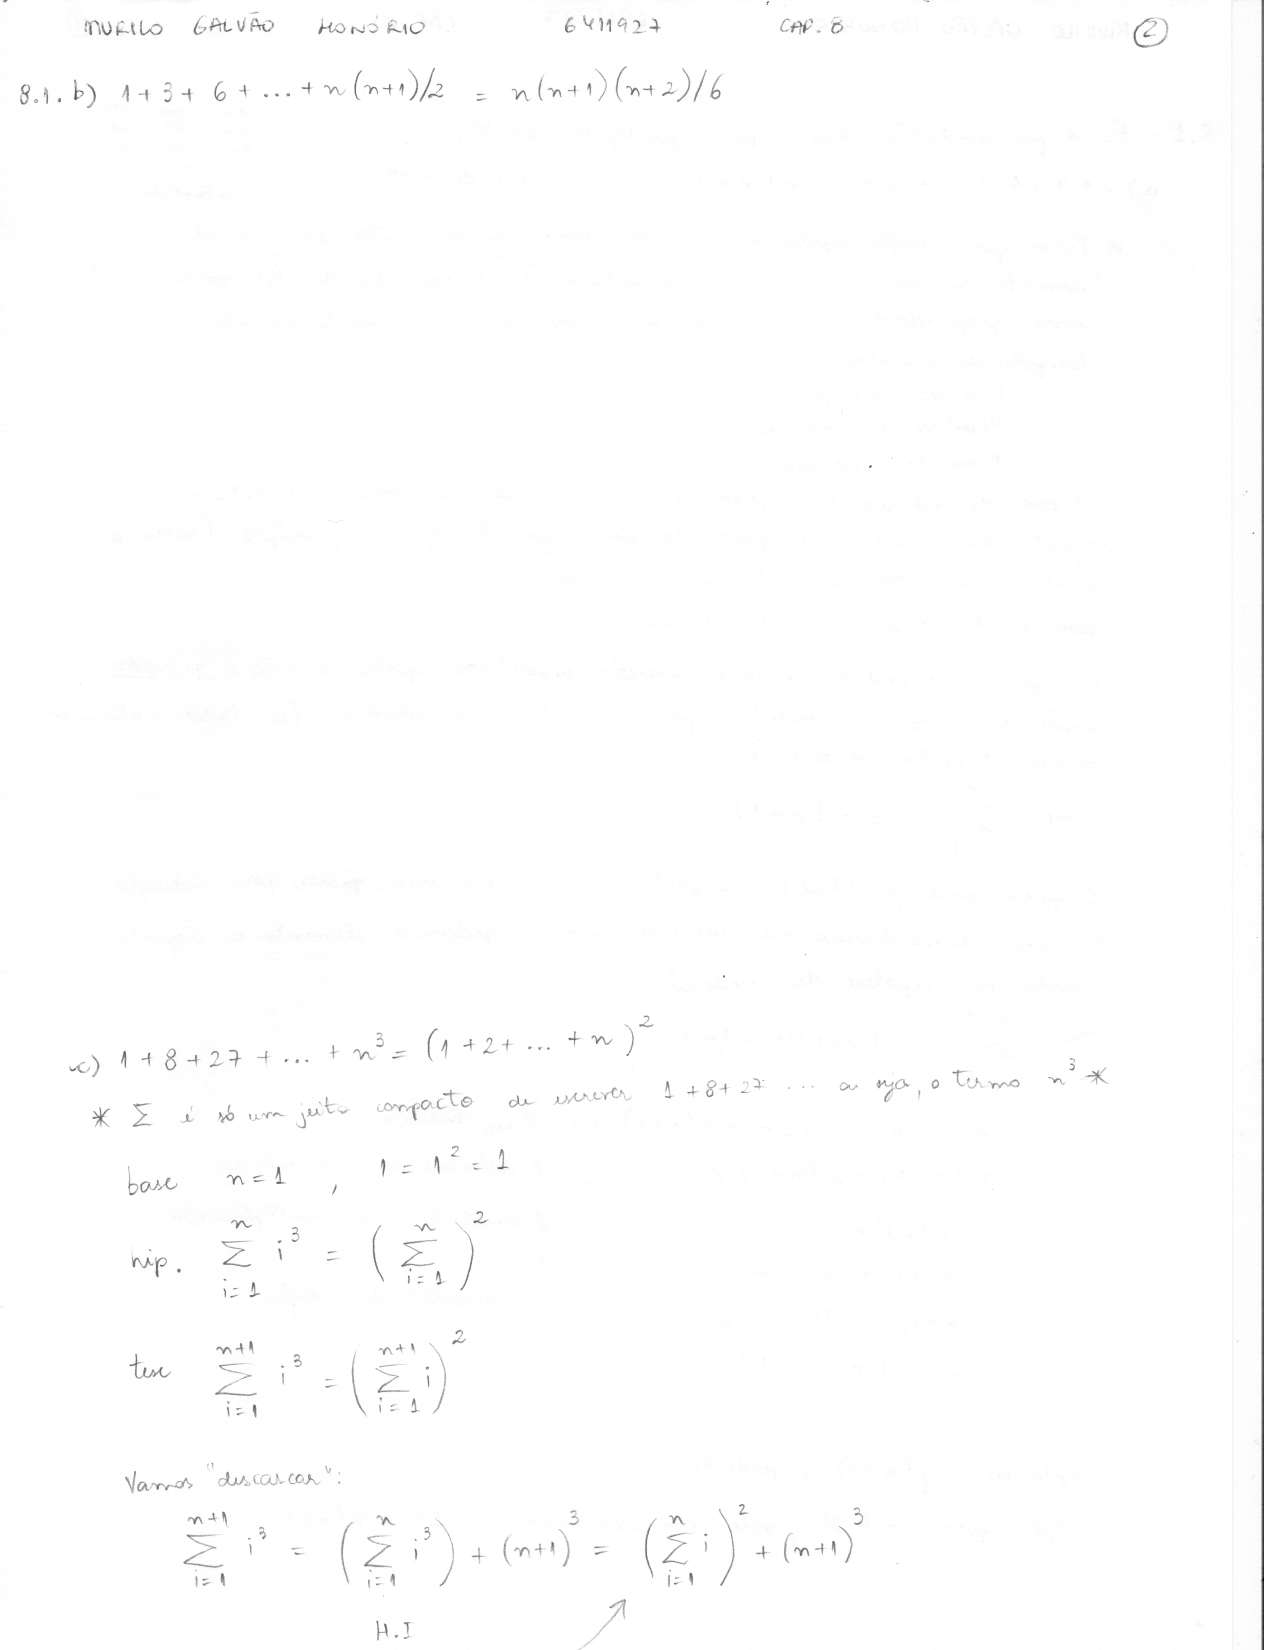 MURILO GALVÃO HONÓRIO 6411927 CAP. 8 2
8.1. b) 1+3+6+...+n(n+1)/2 = n(n+1)(n+2)/6
c) 1+8+27+...+n³ = (1+2+...+n)²
* Σ é só um jeito compacto de escrever 1+8+27... ou seja, o termo n³ *
base n=1 , 1 = 1² = 1
hip. Σ_{i=1}^{n} i³ = (Σ_{i=1}^{n})²
tese Σ_{i=1}^{n+1} i³ = (Σ_{i=1}^{n+1} i)²
Vamos "descascar":
Σ_{i=1}^{n+1} i³ = (Σ_{i=1}^{n} i³) + (n+1)³ = (Σ_{i=1}^{n} i)² + (n+1)³
H.I